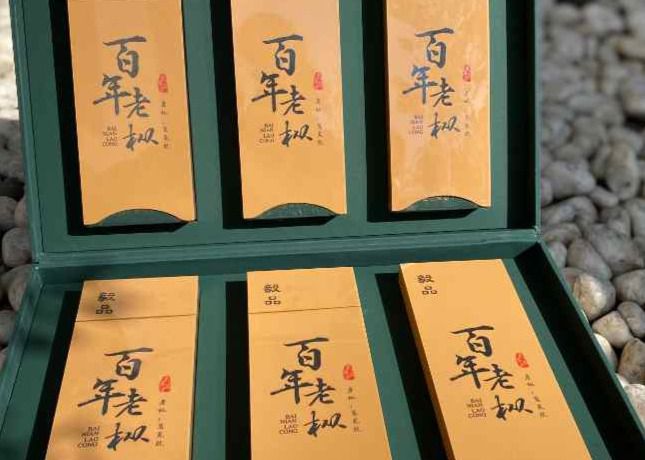 百年老枞
BAI
NIAN
LAO
CONG
百年老枞
BAI
NIAN
LAO
CONG
百年老枞
BAI
NIAN
LAO
CONG
毅品
百年老枞
BAI
NIAN
LAO
CONG
毅品
百年老枞
BAI
NIAN
LAO
CONG
毅品
百年老枞
BAI
NIAN
LAO
CONG